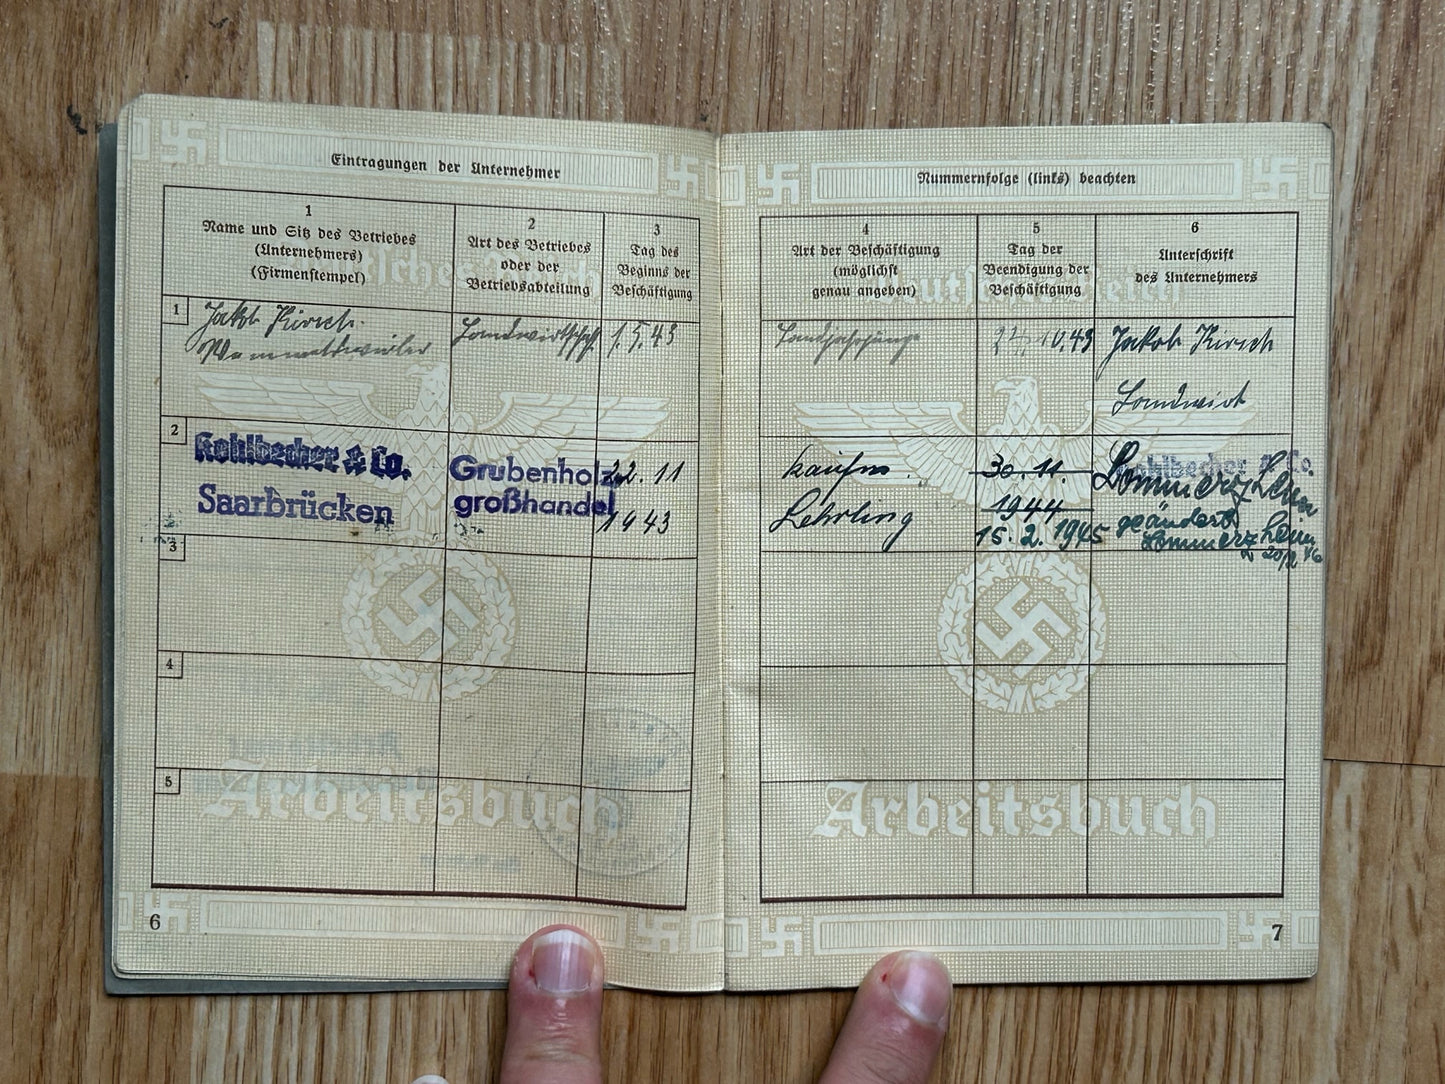 Eintragungen der Unternehmer
1
Name und Sitz des Betriebes
(Unternehmers)
(Firmenstempel)
2
Art des Betriebes
oder der
Betriebsabteilung
3
Tag des
Beginns der
Beschäftigung
1
Jakob Kirsch
Landwirtschaft
1.5.43
2
Kohlbecher & Co.
Saarbrücken
Grubenholz
großhandel
22.11
1943
3
4
5
Arbeitsbuch
6
Nummernfolge (links) beachten
4
Art der Beschäftigung
(möglichst
genau angeben)
5
Tag der
Beendigung der
Beschäftigung
6
Unterschrift
des Unternehmers
10.43
Jakob Kirsch
Landwirt
kaufm.
Lehrling
30.11.
1944
15.2.1945
Kohlbecher & Co.
geändert
Arbeitsbuch
7